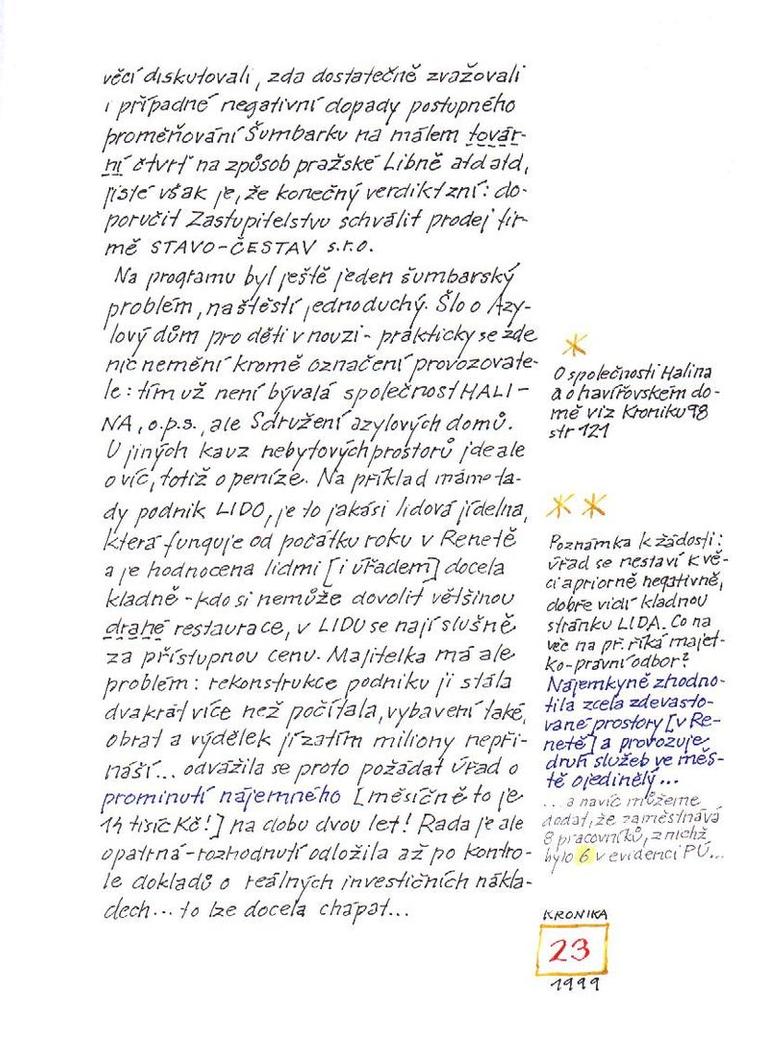 věcí diskutovali, zda dostatečně zvažovali
i případné negativní dopady postupného
proměňování Šumbarku na málem továr-
ní čtvrť na způsob pražské Libně atd atd,
jisté však je, že konečný verdikt zní: do-
poručit Zastupitelstvu schválit prodej fir-
mě STAVO-ČESTAV s.r.o.
Na programu byl ještě jeden šumbarský
problém, naštěstí jednoduchý. Šlo o Azy-
lový dům pro děti v nouzi - prakticky se zde
nic nemění kromě označení provozovate-
le: tím už není bývalá společnost HALI-
NA, o.p.s., ale Sdružení azylových domů.
U jiných kauz nebytových prostorů jde ale
o víc, totiž o peníze. Na příklad máme ta-
dy podnik LIDO, je to jakási lidová jídelna,
která funguje od počátku roku v Renetě
a je hodnocena lidmi [i úřadem] docela
kladně - kdo si nemůže dovolit většinou
drahé restaurace, v LIDU se nají slušně
za přístupnou cenu. Majitelka má ale
problém: rekonstrukce podniku ji stála
dvakrát více než počítala, vybavení také,
obrat a výdělek jí zatím miliony nepři-
náší... odvážila se proto požádat úřad o
prominutí nájemného [měsíčně to je
14 tisíc Kč!] na dobu dvou let! Rada je ale
opatrná - rozhodnutí odložila až po kontro-
le dokladů o reálných investičních nákla-
dech... to lze docela chápat...
*
O společnosti Halina
a o havířovském do-
mě viz Kroniku 98
str 121
* *
Poznámka k žádosti:
úřad se nestaví k vě-
ci apriorně negativně,
dobře vidí kladnou
stránku LIDA. Co na
věc na př. říká majet-
ko-právní odbor?
Nájemkyně zhodno-
tila zcela zdevasto-
vané prostory [v Re-
netě] a provozuje
druh služeb ve měs-
tě ojedinělý...
... a navíc můžeme
dodat, že zaměstnává
8 pracovníků, z nichž
bylo 6 v evidenci PÚ...
KRONIKA
23
1999